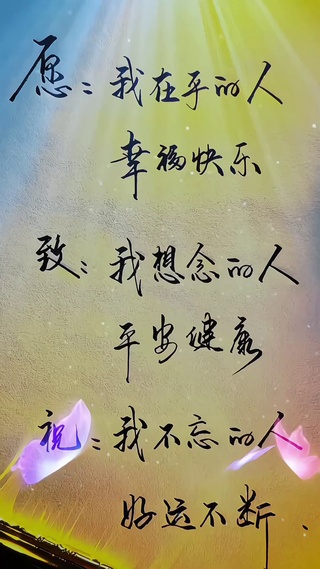 愿：我在乎的人
幸福快乐
致：我想念的人
平安健康
祝：我不忘的人
好运不断、